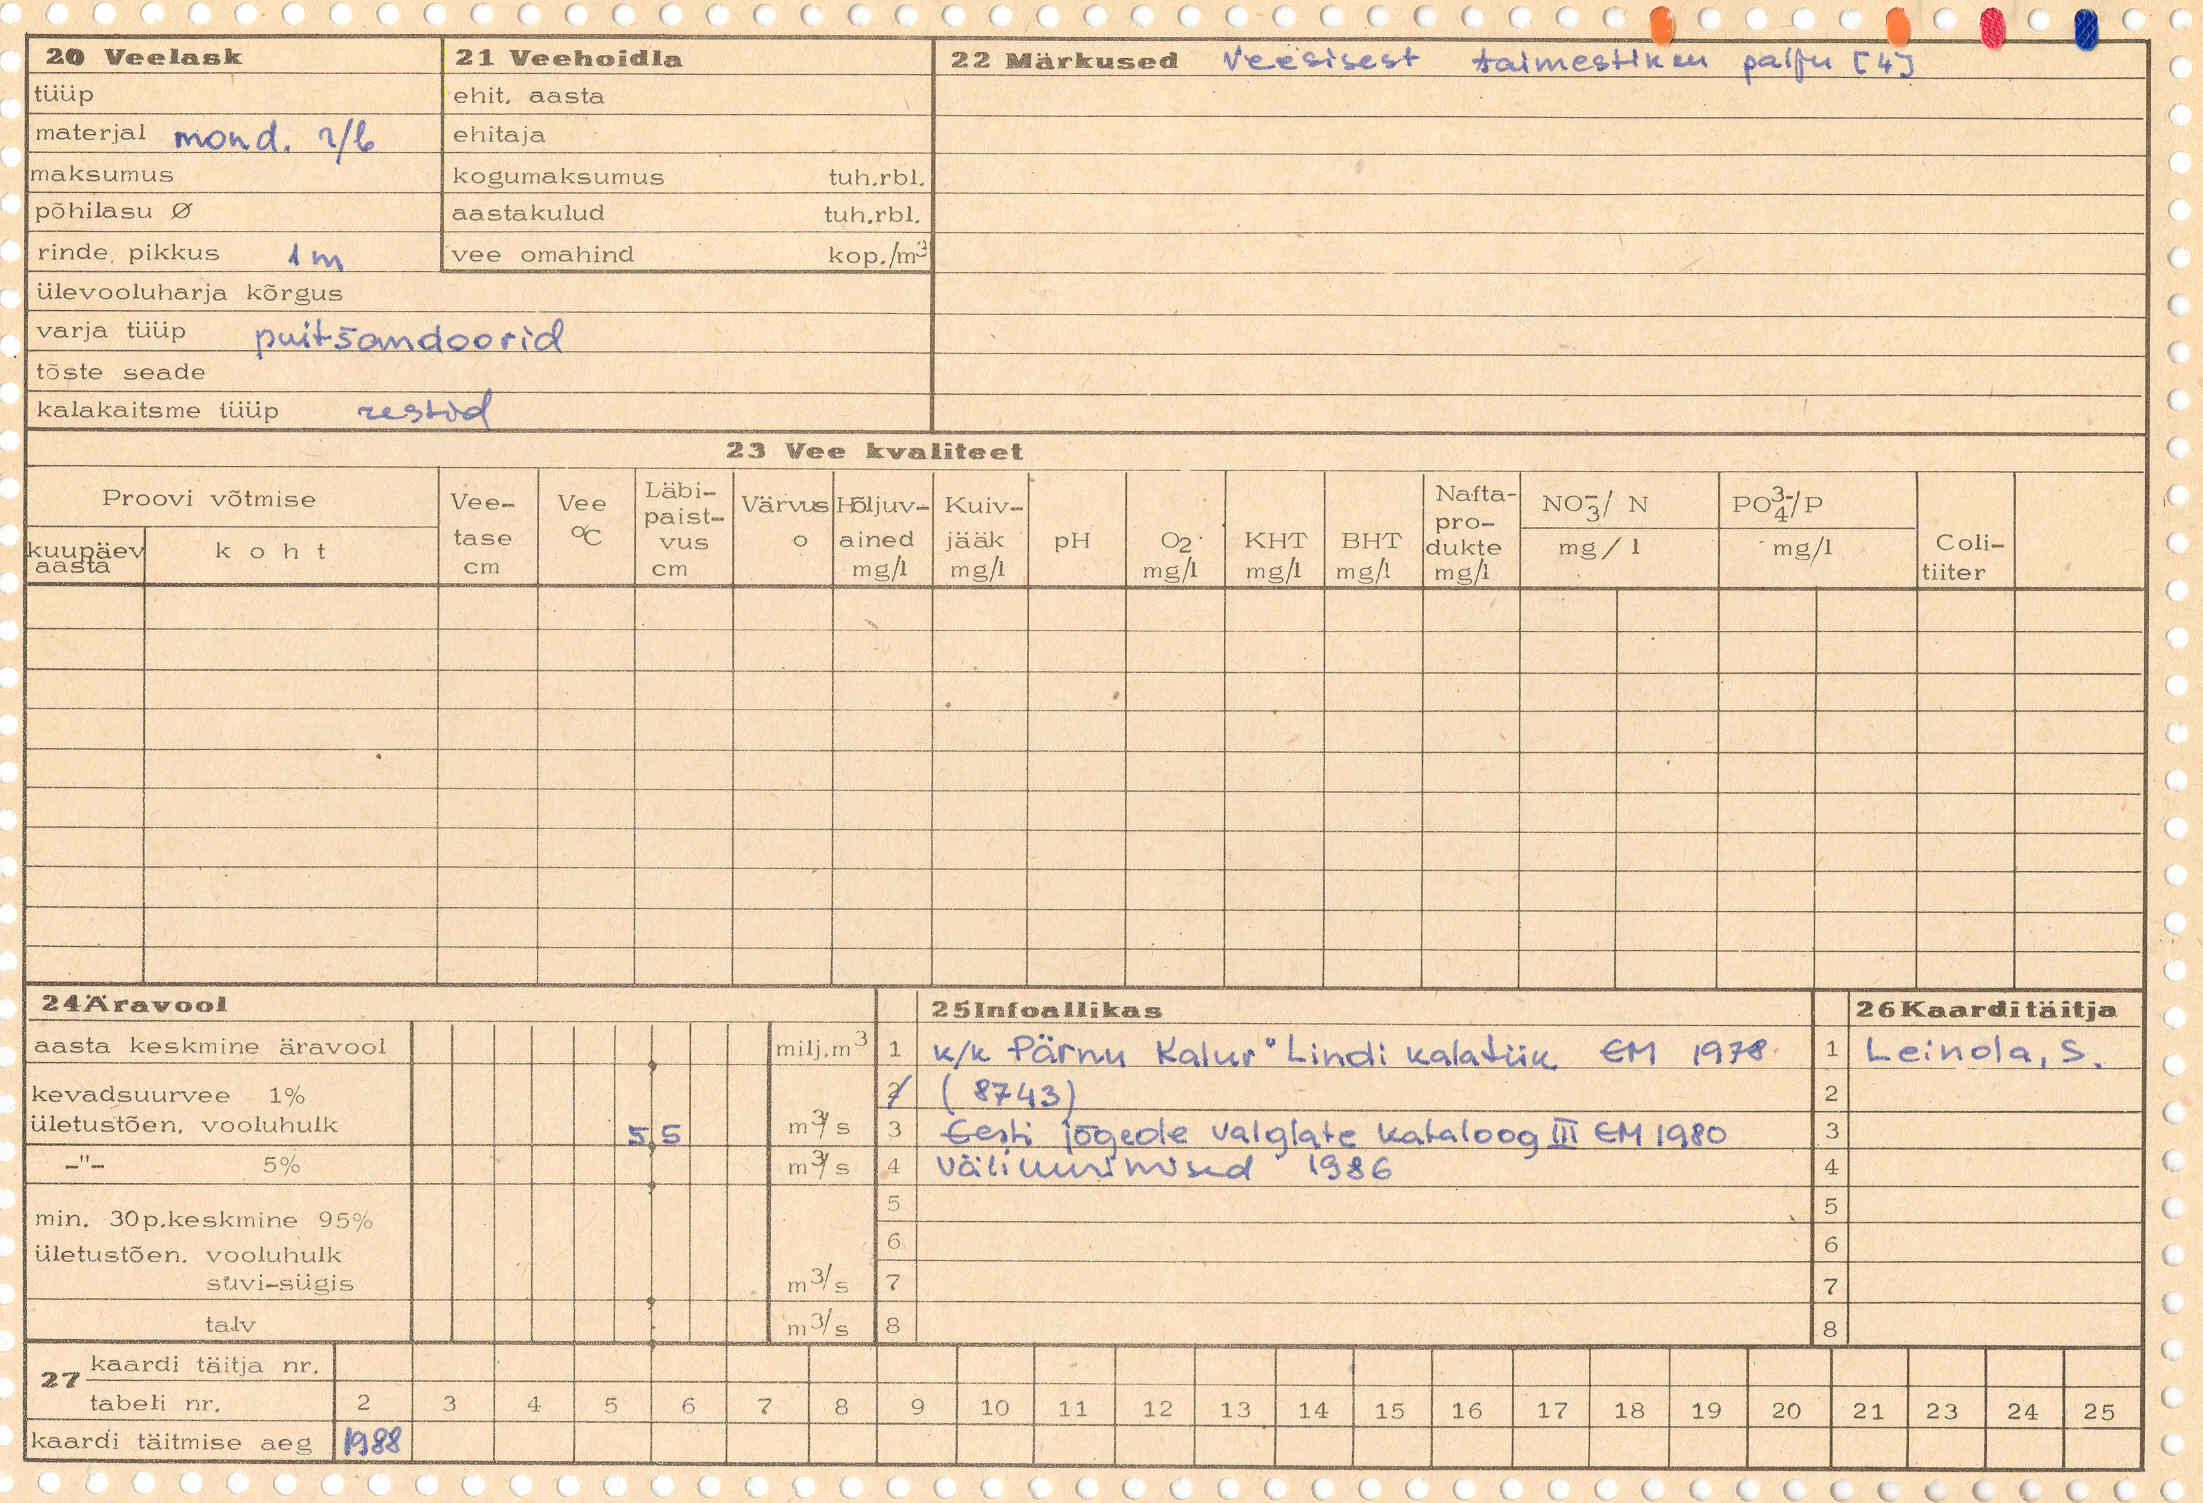 20 Veelask
tüüp
materjal mond. r/b
maksumus
põhilasu Ø
rinde, pikkus 1 m
ülevooluharja kõrgus
varja tüüp puitšandoorid
tõste seade
kalakaitsme tüüp restid
21 Veehoidla
ehit. aasta
ehitaja
kogumaksumus tuh.rbl.
aastakulud tuh.rbl.
vee omahind kop./m³
22 Märkused Veesisest taimestikku palju [4]
23 Vee kvaliteet
Proovi võtmise
kuupäev aasta
koht
Vee-
tase
cm
Vee
°C
Läbi-
paist-
vus
cm
Värvus
o
Hõljuv-
ained
mg/l
Kuiv-
jääk
mg/l
pH
O₂
mg/l
KHT
mg/l
BHT
mg/l
Nafta-
pro-
dukte
mg/l
NO₃⁻/ N
mg/l
PO₄³⁻/P
mg/l
Coli-
tiiter
24 Äravool
aasta keskmine äravool milj.m³
kevadsuurvee 1%
ületustõen. vooluhulk 5 5 m³/s
-"- 5% m³/s
min. 30p.keskmine 95%
ületustõen. vooluhulk
suvi-sügis m³/s
talv m³/s
25 Infoallikas
1 k/k Pärnu Kalur" Lindi kalatiik EM 1978
2 (8743)
3 Eesti jõgede valglate kataloog III EM 1980
4 Väliuurimised 1986
5
6
7
8
26 Kaardi täitja
1 Leinola, S.
2
3
4
5
6
7
8
27 kaardi täitja nr.
tabeli nr. 2 3 4 5 6 7 8 9 10 11 12 13 14 15 16 17 18 19 20 21 23 24 25
kaardi täitmise aeg 1988